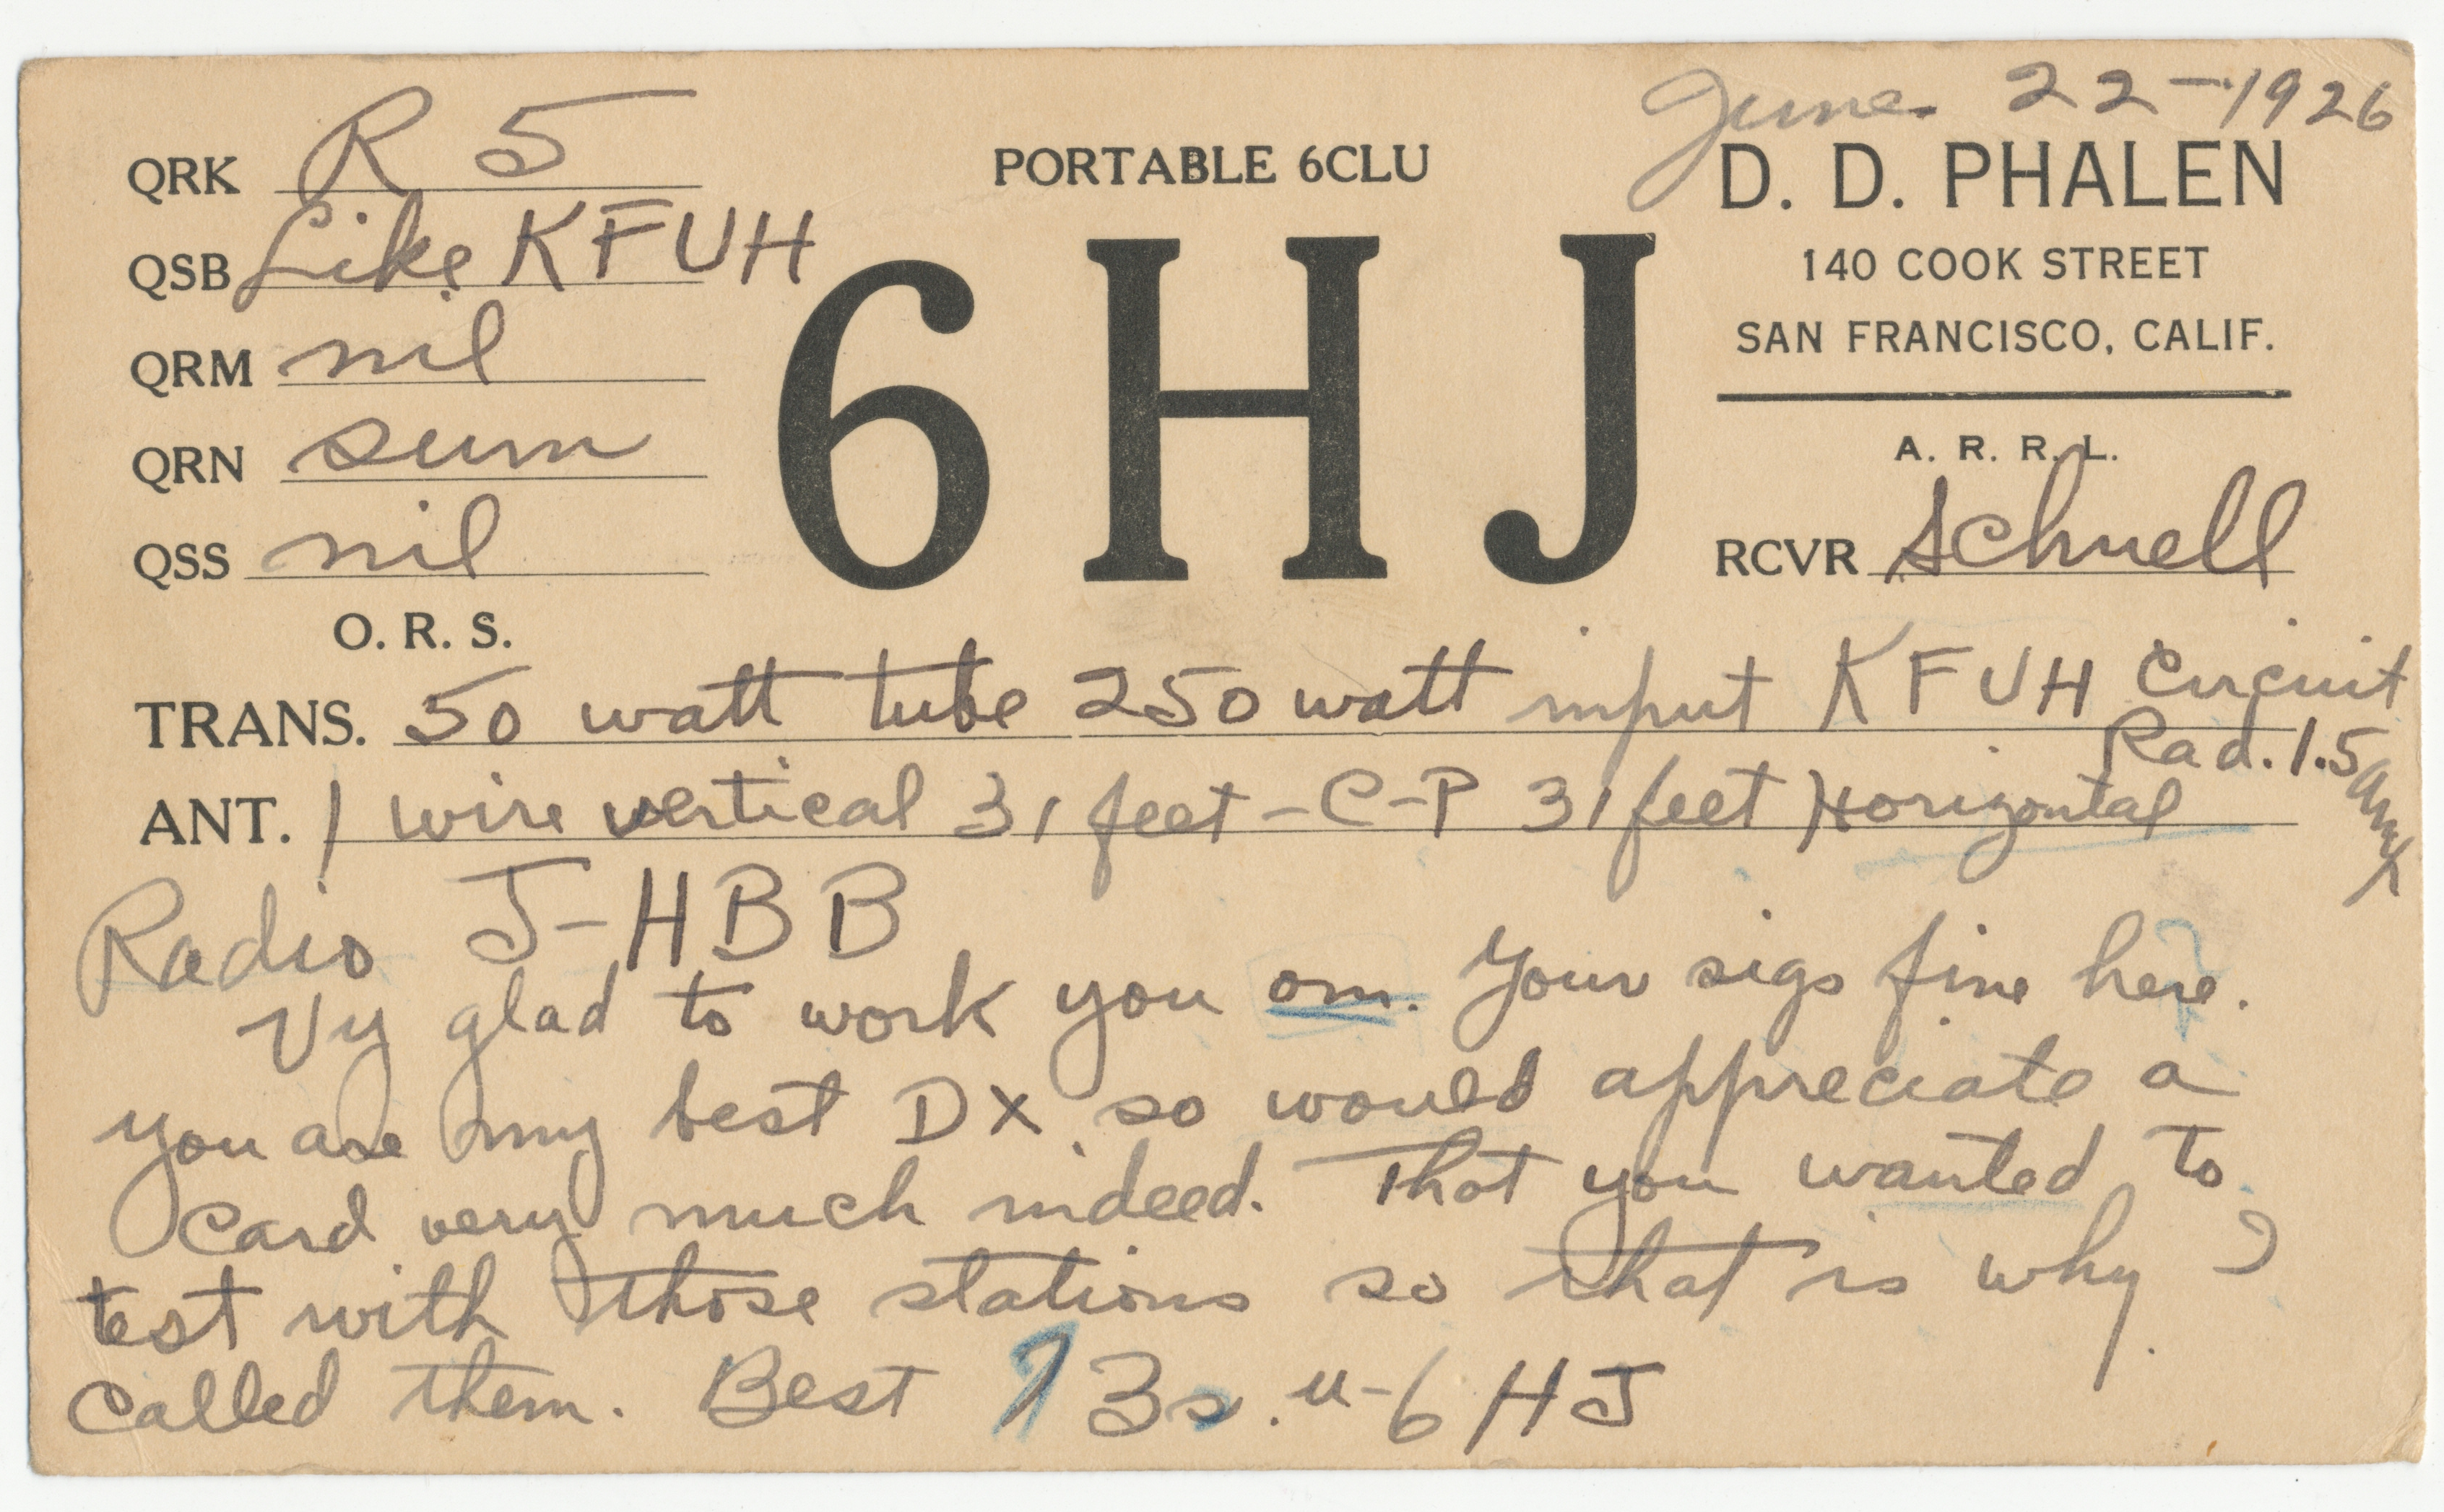 June 22-1926
QRK R 5
PORTABLE 6CLU
D. D. PHALEN
QSB Like KFUH
140 COOK STREET
QRM nil
6HJ
SAN FRANCISCO, CALIF.
QRN sum
A. R. R. L.
QSS nil
RCVR Schnell
O. R. S.
TRANS. 50 watt tube 250 watt input KFUH Circuit
Rad. 1.5 amp
ANT. 1 wire vertical 31 feet - C-P 31 feet Horizontal
Radio J-HBB
Vy glad to work you om. Your sigs fine here.
you are my best DX so would appreciate a
card very much indeed. That you wanted to
test with those stations so that is why I
called them. Best 73s. u-6HJ